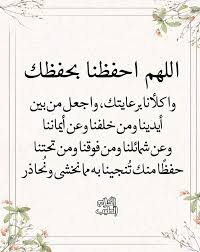 اللهم احفظنا بحفظك
واكلأنا برعايتك، واجعل من بين
أيدينا ومن خلفنا وعن أيماننا
وعن شمائلنا ومن فوقنا ومن تحتنا
حفظًا منك تُنجينا به مما نخشى ونُحاذر